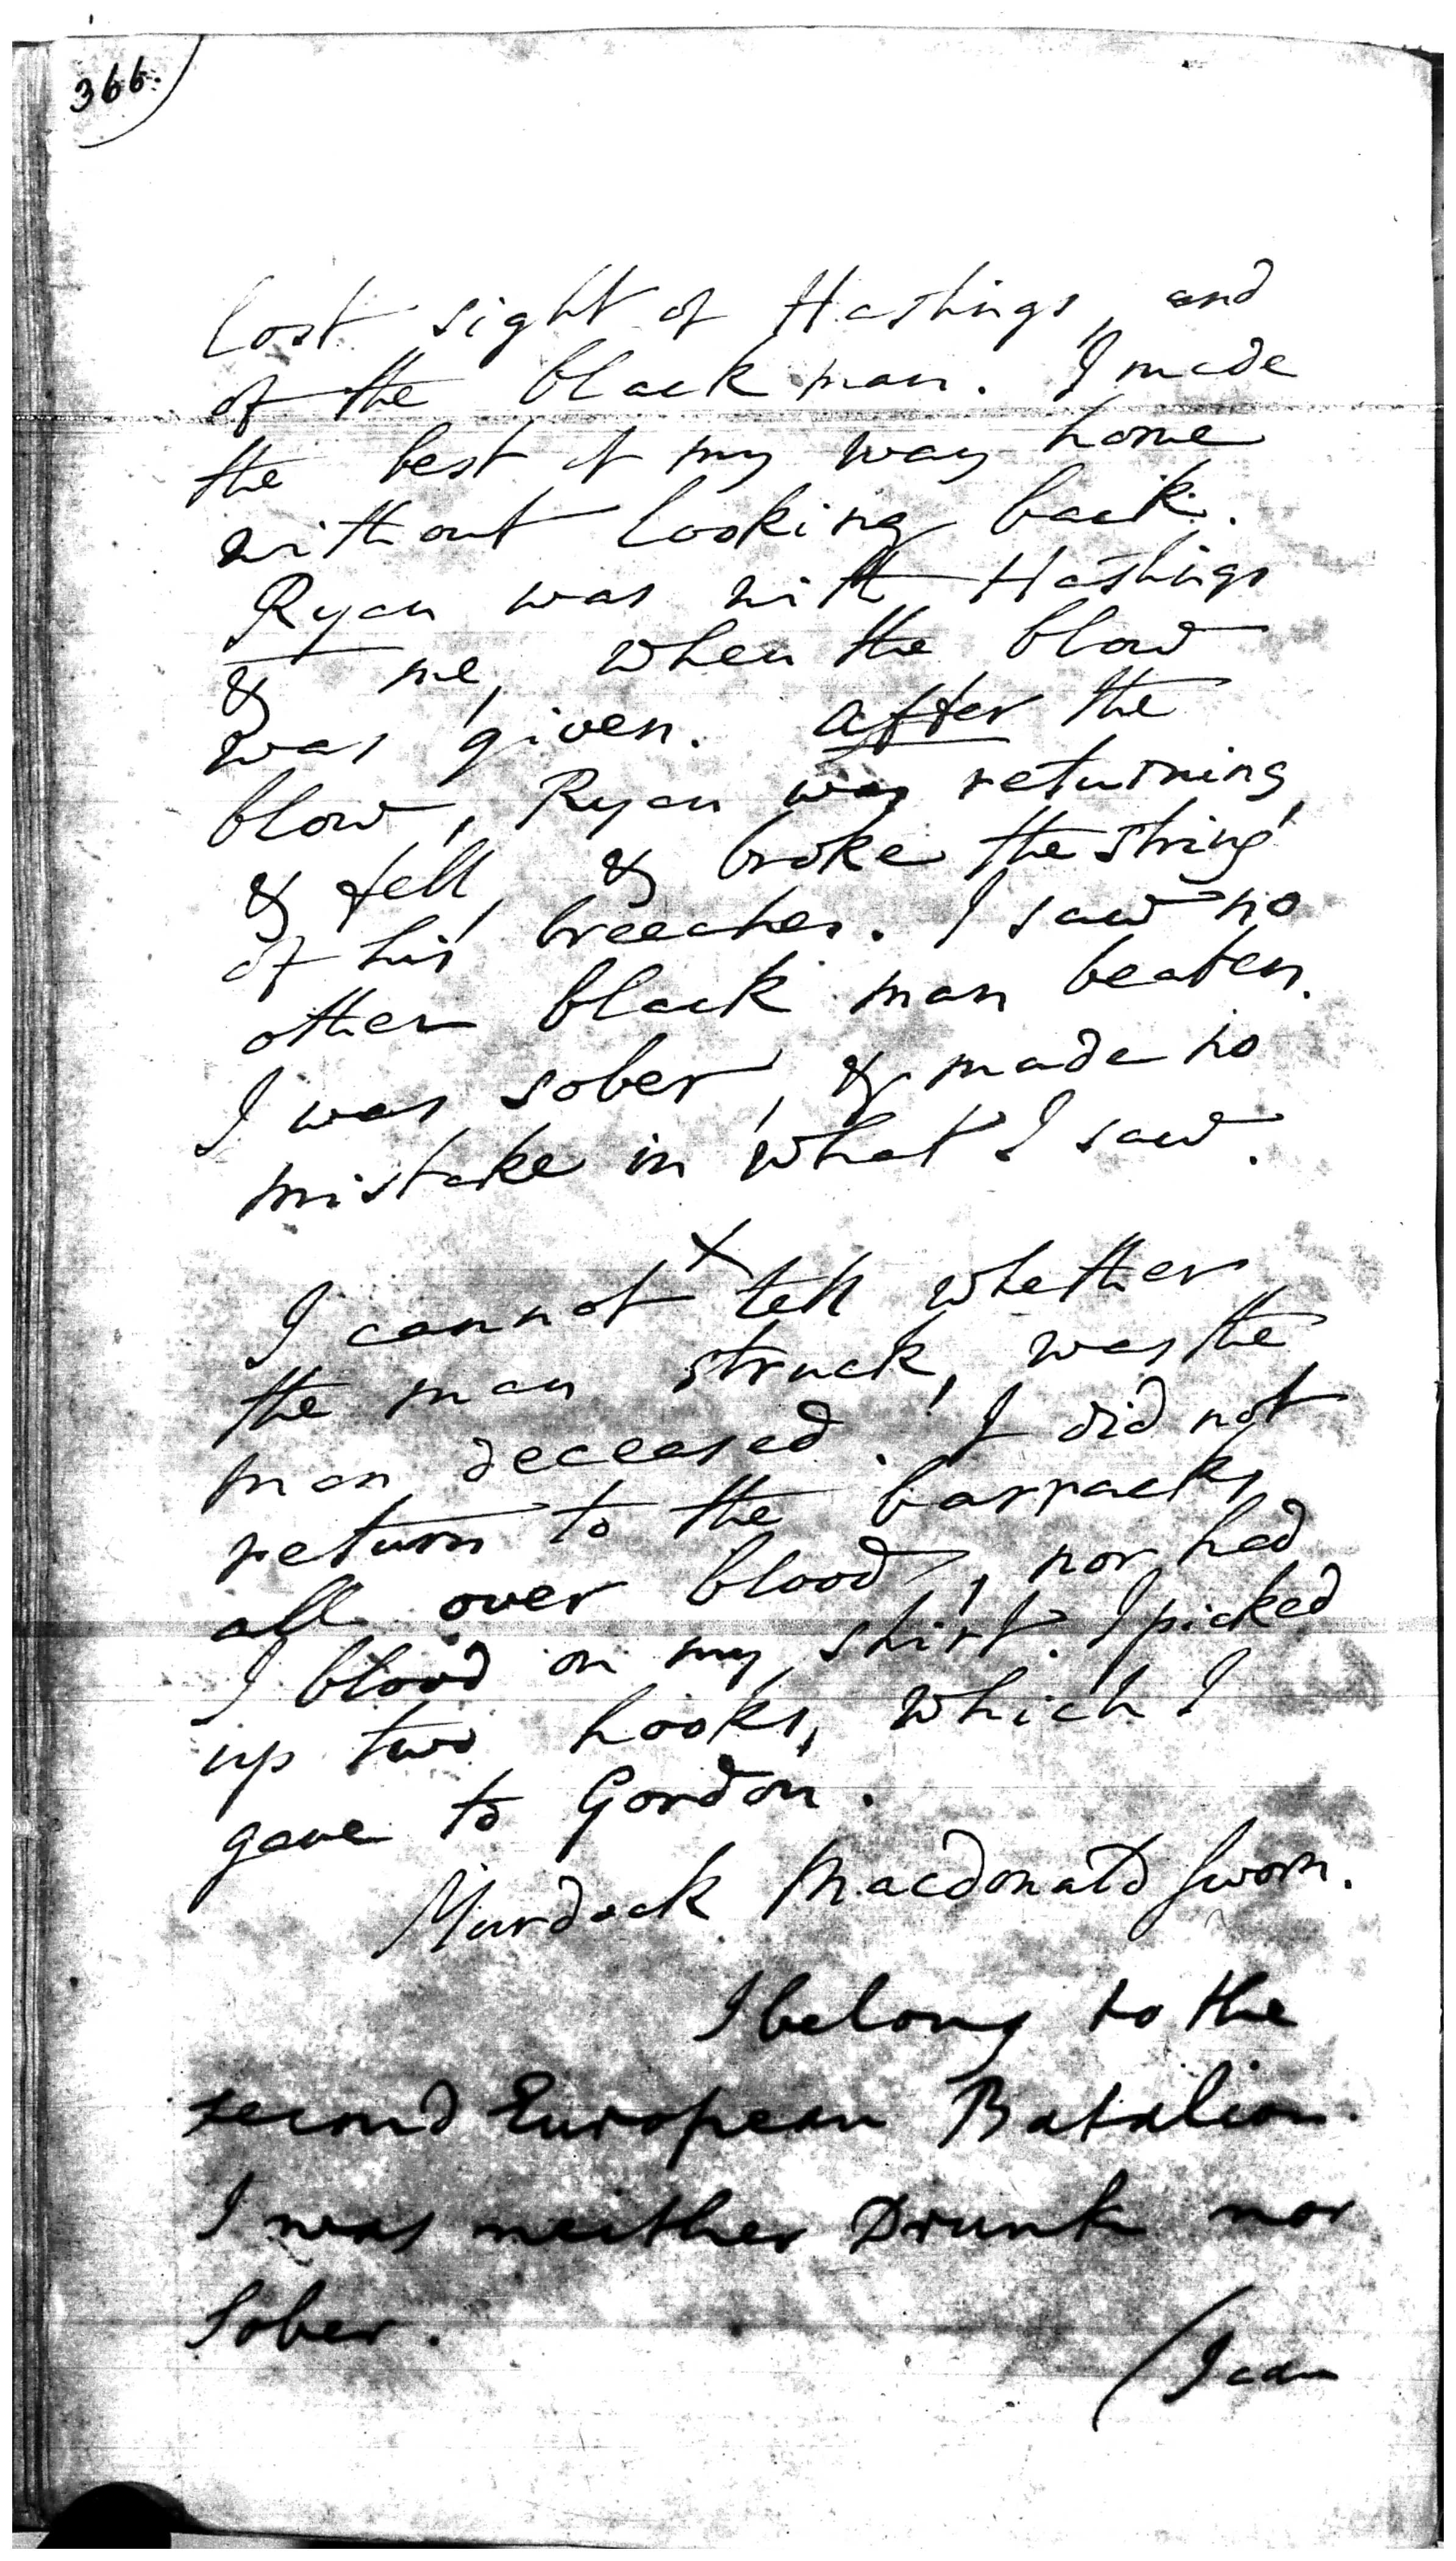 366.
lost sight of Hastings, and
of the black man. I made
the best of my way home
without looking back.
Ryan was with Hastings
& me, when the blow
was given. after the
blow, Ryan was returning,
& fell, & broke the string
of his breeches. I saw no
other black man beaten.
I was sober, & made no
mistake in what I saw.
X
I cannot tell whether
the man struck, was the
man deceased. I did not
return to the barracks
all over blood, nor had
I blood on my shirt. I picked
up two hooks, which I
gave to Gordon.
Murdock Macdonald sworn.
I belong to the
second European Batalion.
I was neither Drunk nor
sober.
(I can